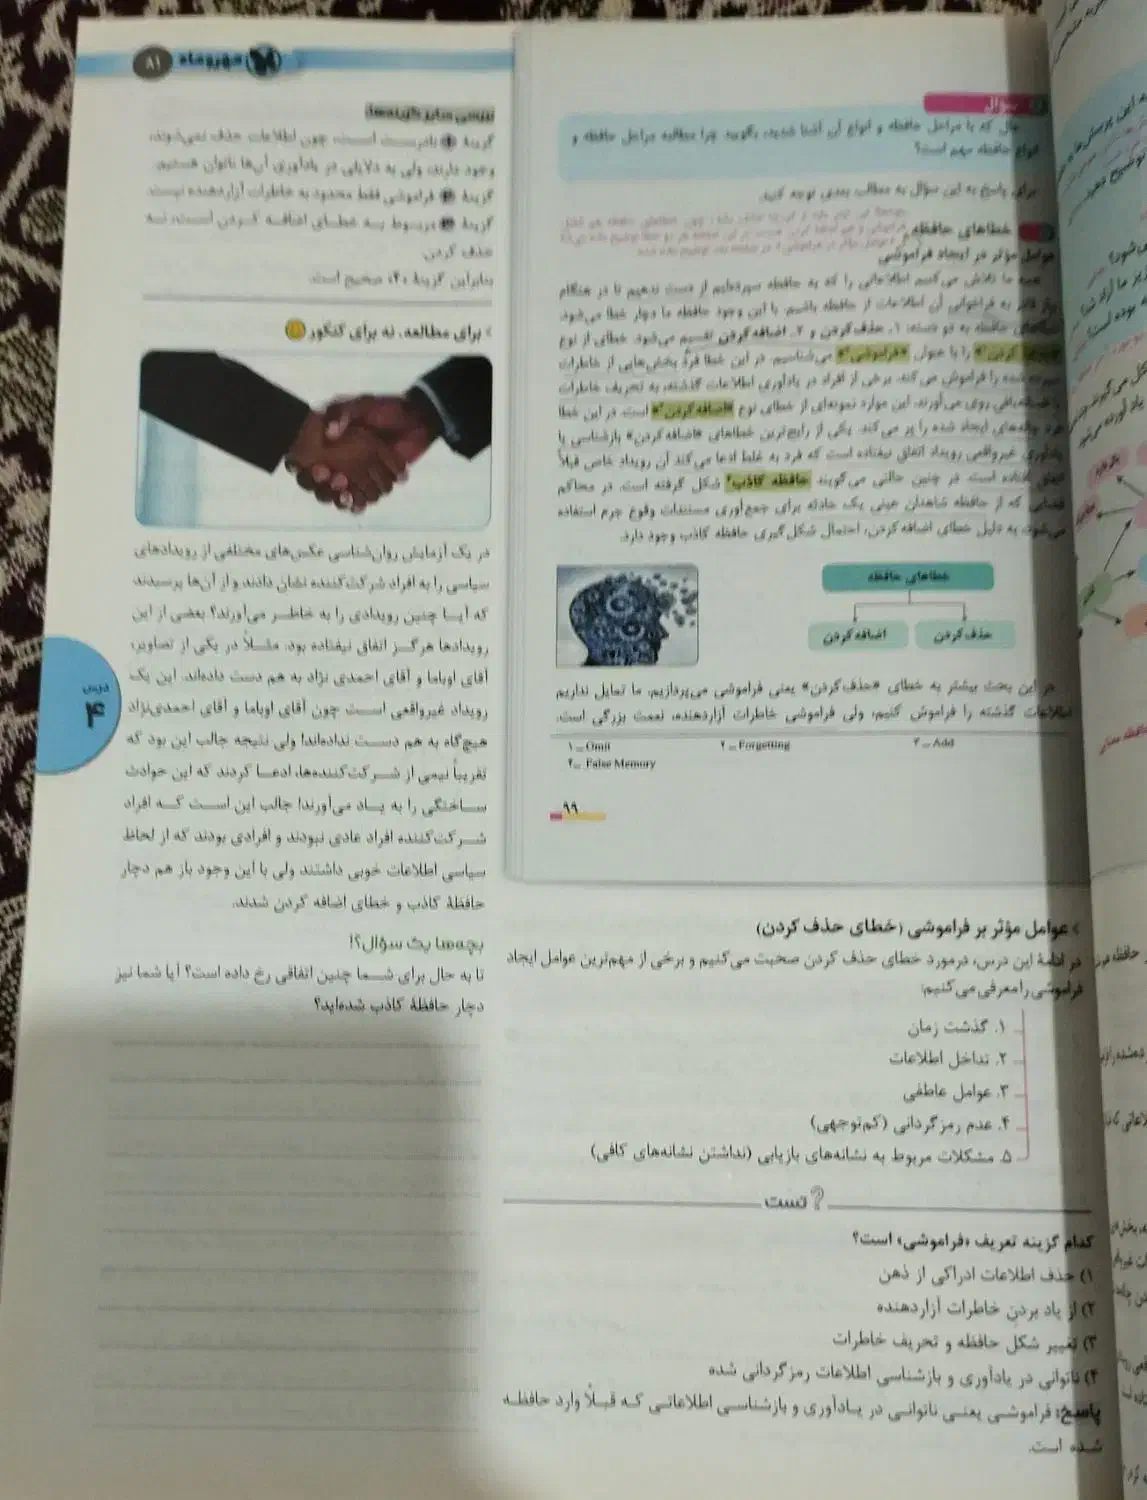 مهروماه
۸۱
سؤال
حال که با مراحل حافظه و انواع آن آشنا شدید، بگویید چرا مطالعه مراحل حافظه و
انواع حافظه مهم است؟
برای پاسخ به این سؤال به مطالب بعدی توجه کنید.
خطاهای حافظه
عوامل مؤثر در ایجاد فراموشی
همه ما تلاش می‌کنیم اطلاعاتی را که به حافظه سپرده‌ایم از دست ندهیم تا در هنگام
نیاز قادر به فراخوانی آن اطلاعات از حافظه باشیم. با این وجود حافظه ما دچار خطا می‌شود.
خطاهای حافظه به دو دسته: ۱ـ حذف کردن و ۲ـ اضافه کردن تقسیم می‌شود. خطای از نوع
کردن¹» را با عنوان «فراموشی²» می‌شناسیم. در این خطا فرد بخش‌هایی از خاطرات
سپرده شده را فراموش می‌کند. برخی از افراد در یادآوری اطلاعات گذشته، به تحریف خاطرات
یا افسانه‌بافی روی می‌آورند. این موارد نمونه‌ای از خطای نوع «اضافه کردن³» است. در این خطا
فرد چاله‌های ایجاد شده را پر می‌کند. یکی از رایج‌ترین خطاهای «اضافه کردن» بازشناسی یا
یادآوری غیرواقعی رویداد اتفاق نیفتاده است که فرد به غلط ادعا می‌کند آن رویداد خاص قبلاً
اتفاق افتاده است. در چنین حالتی می‌گویند حافظه کاذب⁴ شکل گرفته است. در محاکم
قضایی که از حافظه شاهدان عینی یک حادثه برای جمع‌آوری مستندات وقوع جرم استفاده
می‌شود، به دلیل خطای اضافه کردن، احتمال شکل‌گیری حافظه کاذب وجود دارد.
خطاهای حافظه
حذف کردن
اضافه کردن
در این بحث بیشتر به خطای «حذف کردن» یعنی فراموشی می‌پردازیم. ما تمایل نداریم
اطلاعات گذشته را فراموش کنیم، ولی فراموشی خاطرات آزاردهنده، نعمت بزرگی است.
۱ــ Omit
۲ــ Forgetting
۳ــ Add
۴ــ False Memory
۹۹
› عوامل مؤثر بر فراموشی (خطای حذف کردن)
در ادامهٔ این درس، درمورد خطای حذف کردن صحبت می‌کنیم و برخی از مهم‌ترین عوامل ایجاد
فراموشی را معرفی می‌کنیم:
۱. گذشت زمان
۲. تداخل اطلاعات
۳. عوامل عاطفی
۴. عدم رمزگردانی (کم‌توجهی)
۵. مشکلات مربوط به نشانه‌های بازیابی (نداشتن نشانه‌های کافی)
تست
کدام گزینه تعریف «فراموشی» است؟
۱) حذف اطلاعات ادراکی از ذهن
۲) از یاد بردن خاطرات آزاردهنده
۳) تغییر شکل حافظه و تحریف خاطرات
۴) ناتوانی در یادآوری و بازشناسی اطلاعات رمزگردانی شده
پاسخ: فراموشی یعنی ناتوانی در یادآوری و بازشناسی اطلاعاتی که قبلاً وارد حافظه
شده است.
بررسی سایر گزینه‌ها:
گزینهٔ ۱ نادرست است، چون اطلاعات حذف نمی‌شوند،
وجود دارند، ولی به دلایلی در یادآوری آن‌ها ناتوان هستیم.
گزینهٔ ۲ فراموشی فقط محدود به خاطرات آزاردهنده نیست.
گزینهٔ ۳ مربوط به خطای اضافه کردن است، نه
حذف کردن.
بنابراین گزینهٔ «۴» صحیح است.
› برای مطالعه، نه برای کنکور
در یک آزمایش روان‌شناسی عکس‌های مختلفی از رویدادهای
سیاسی را به افراد شرکت‌کننده نشان دادند و از آن‌ها پرسیدند
که آیا چنین رویدادی را به خاطر می‌آورند؟ بعضی از این
رویدادها هرگز اتفاق نیفتاده بود. مثلاً در یکی از تصاویر،
آقای اوباما و آقای احمدی نژاد به هم دست داده‌اند. این یک
رویداد غیرواقعی است چون آقای اوباما و آقای احمدی‌نژاد
هیچ‌گاه به هم دست نداده‌اند! ولی نتیجه جالب این بود که
تقریباً نیمی از شرکت‌کننده‌ها، ادعا کردند که این حوادث
ساختگی را به یاد می‌آورند! جالب این است که افراد
شرکت‌کننده افراد عادی نبودند و افرادی بودند که از لحاظ
سیاسی اطلاعات خوبی داشتند ولی با این وجود باز هم دچار
حافظهٔ کاذب و خطای اضافه کردن شدند.
بچه‌ها یک سؤال؟!
تا به حال برای شما چنین اتفاقی رخ داده است؟ آیا شما نیز
دچار حافظهٔ کاذب شده‌اید؟
درس
۴